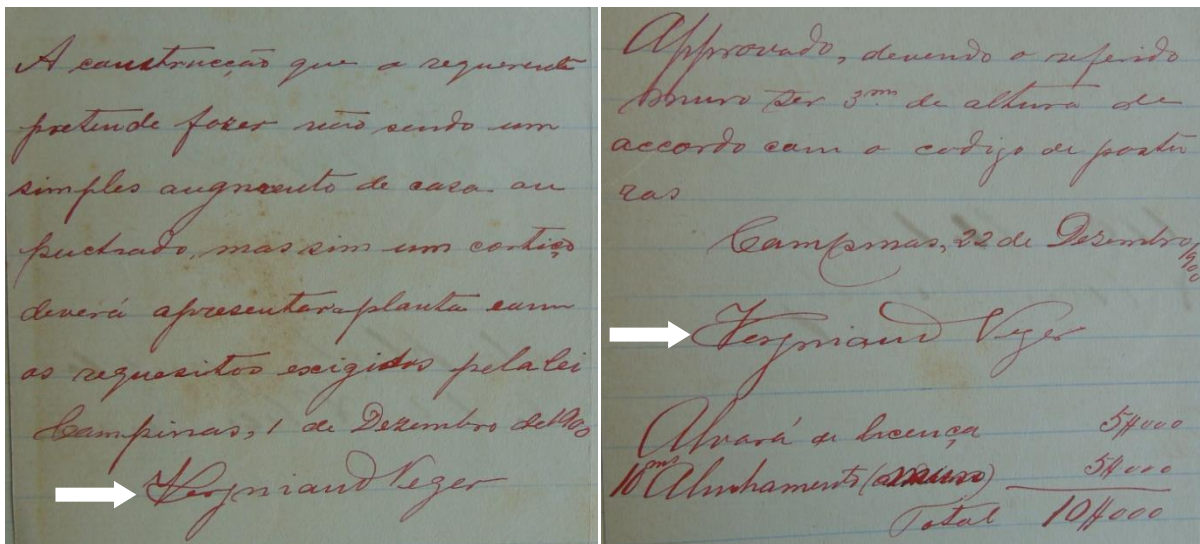 A construcção que o requerente
pretende fazer não sendo um
simples augmento de casa ou
puchado, mas sim um cortiço
deverá apresentar planta com
os requesitos exigidos pela lei
Campinas, 1 de Dezembro de 1900
Vergniaud Neger
Approvado, devendo o referido
muro ter 3m de altura de
accordo com o codigo de postu
ras
Campinas, 22 de Dezembro 1900
Vergniaud Neger
Alvará de licença 5$000
10ms Alinhamento (muro) 5$000
Total 10$000